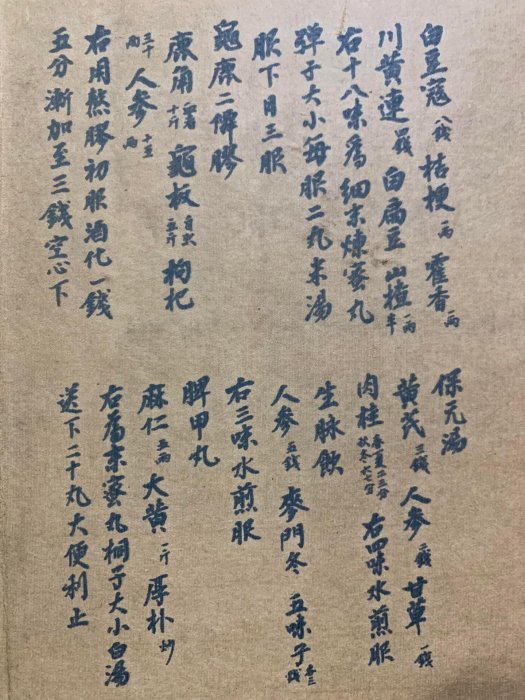 白豆寇 八錢 桔梗 一兩 霍香 一兩
川黃連 四錢 白扁豆 山楂 一兩半
右十八味為細末煉蜜丸
彈子大小每服二丸米湯
服下日三服
龜鹿二僊膠
鹿角 十斤 龜板 五斤 枸杞
三十兩 人參 十五兩
右用熬膠初服酒化一錢
五分漸加至三錢空心下
保元湯
黃芪 三錢 人參 二錢 甘草 一錢
肉桂 春夏二三分秋冬六七分 右四味水煎服
生脉飲
人參 五錢 麥門冬 五味子 各三錢
右三味水煎服
脾甲丸
麻仁 五兩 大黃 一斤 厚朴 炒
右為末蜜丸桐子大小白湯
送下二十丸大便利止